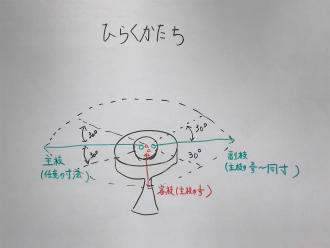 ひらくかたち
30°
30°
30°
30°
主枝
(任意の寸法)
副枝
(主枝の
〜同寸)
客枝(主枝の